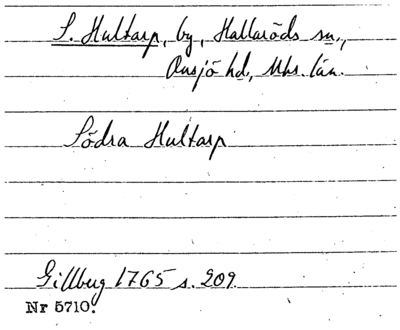 S. Hultarp, by, Hallaröds sn.,
Onsjö hd., Mhs. län.
Södra Hultarp
Gillberg 1765 s. 209.
Nr 5710.